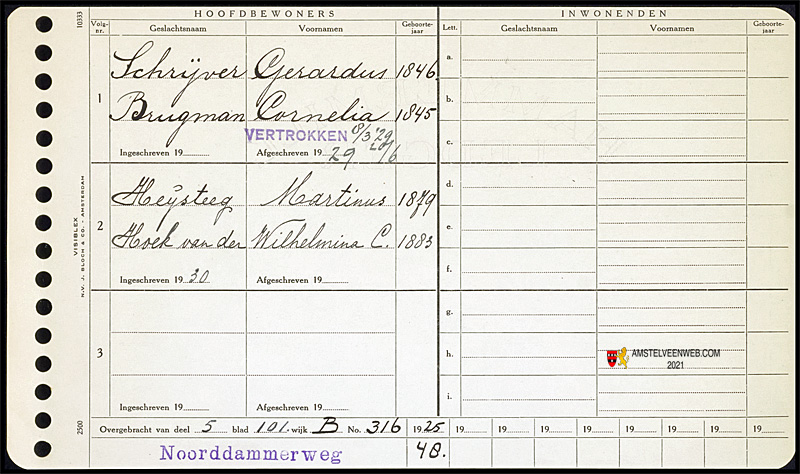 10333
HOOFDBEWONERS
INWONENDEN
Volg-nr. Geslachtsnaam Voornamen Geboorte-jaar Lett. Geslachtsnaam Voornamen Geboorte-jaar
1
Schrijver Gerardus 1846.
Brugman Cornelia 1845
VERTROKKEN 8/3 '29
Ingeschreven 19 Afgeschreven 19 29 20/6
2
Heijsteeg Martinus 1879
Hoek van der Wilhelmina C. 1883
Ingeschreven 19 30 Afgeschreven 19
3
Ingeschreven 19 Afgeschreven 19
a.
b.
c.
d.
e.
f.
g.
h.
i.
AMSTELVEENWEB.COM
2021
VISIBLEX
N.V. J. BLOCH & CO. - AMSTERDAM
2500
Overgebracht van deel 5 blad 101. wijk B No. 316 1925 19 19 19 19 19 19 19 19
Noorddammerweg 48.